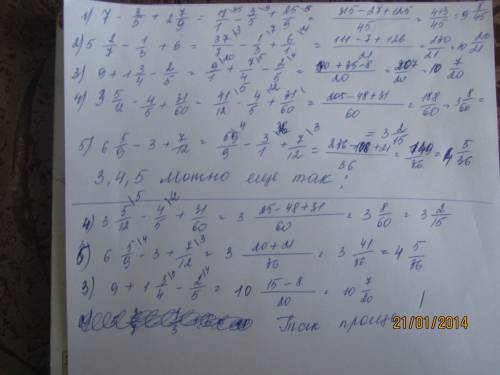 1) 7 - 3/5 + 2 7/9 = 7/1 - 3/5 + 25/9 = (315-27+125)/45 = 413/45 = 9 8/45
2) 5 2/7 - 1/3 + 6 = 37/7 - 1/3 + 6/1 = (111-7+126)/21 = 230/21 = 10 20/21
3) 9 + 1 3/4 - 2/5 = 9/1 + 7/4 - 2/5 = (180+35-8)/20 = 207/20 = 10 7/20
4) 3 5/12 - 4/5 + 31/60 = 41/12 - 4/5 + 31/60 = (205-48+31)/60 = 188/60 = 3 8/60 =
= 3 2/15
5) 6 5/9 - 3 + 7/12 = 59/9 - 3/1 + 7/12 = (236-108+21)/36 = 149/36 = 4 5/36
3, 4, 5 можно еще так!
4) 3 5/12 - 4/5 + 31/60 = 3 (25-48+31)/60 = 3 8/60 = 3 2/15
5) 6 5/9 - 3 + 7/12 = 3 (20+21)/36 = 3 41/36 = 4 5/36
3) 9 + 1 3/4 - 2/5 = 10 (15-8)/20 = 10 7/20
Так проще!
21/01/2014